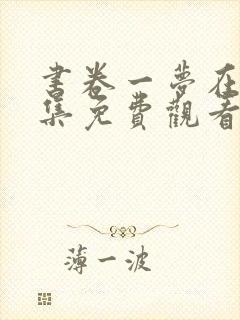 书卷一夢在
集免費觀看
薄一波